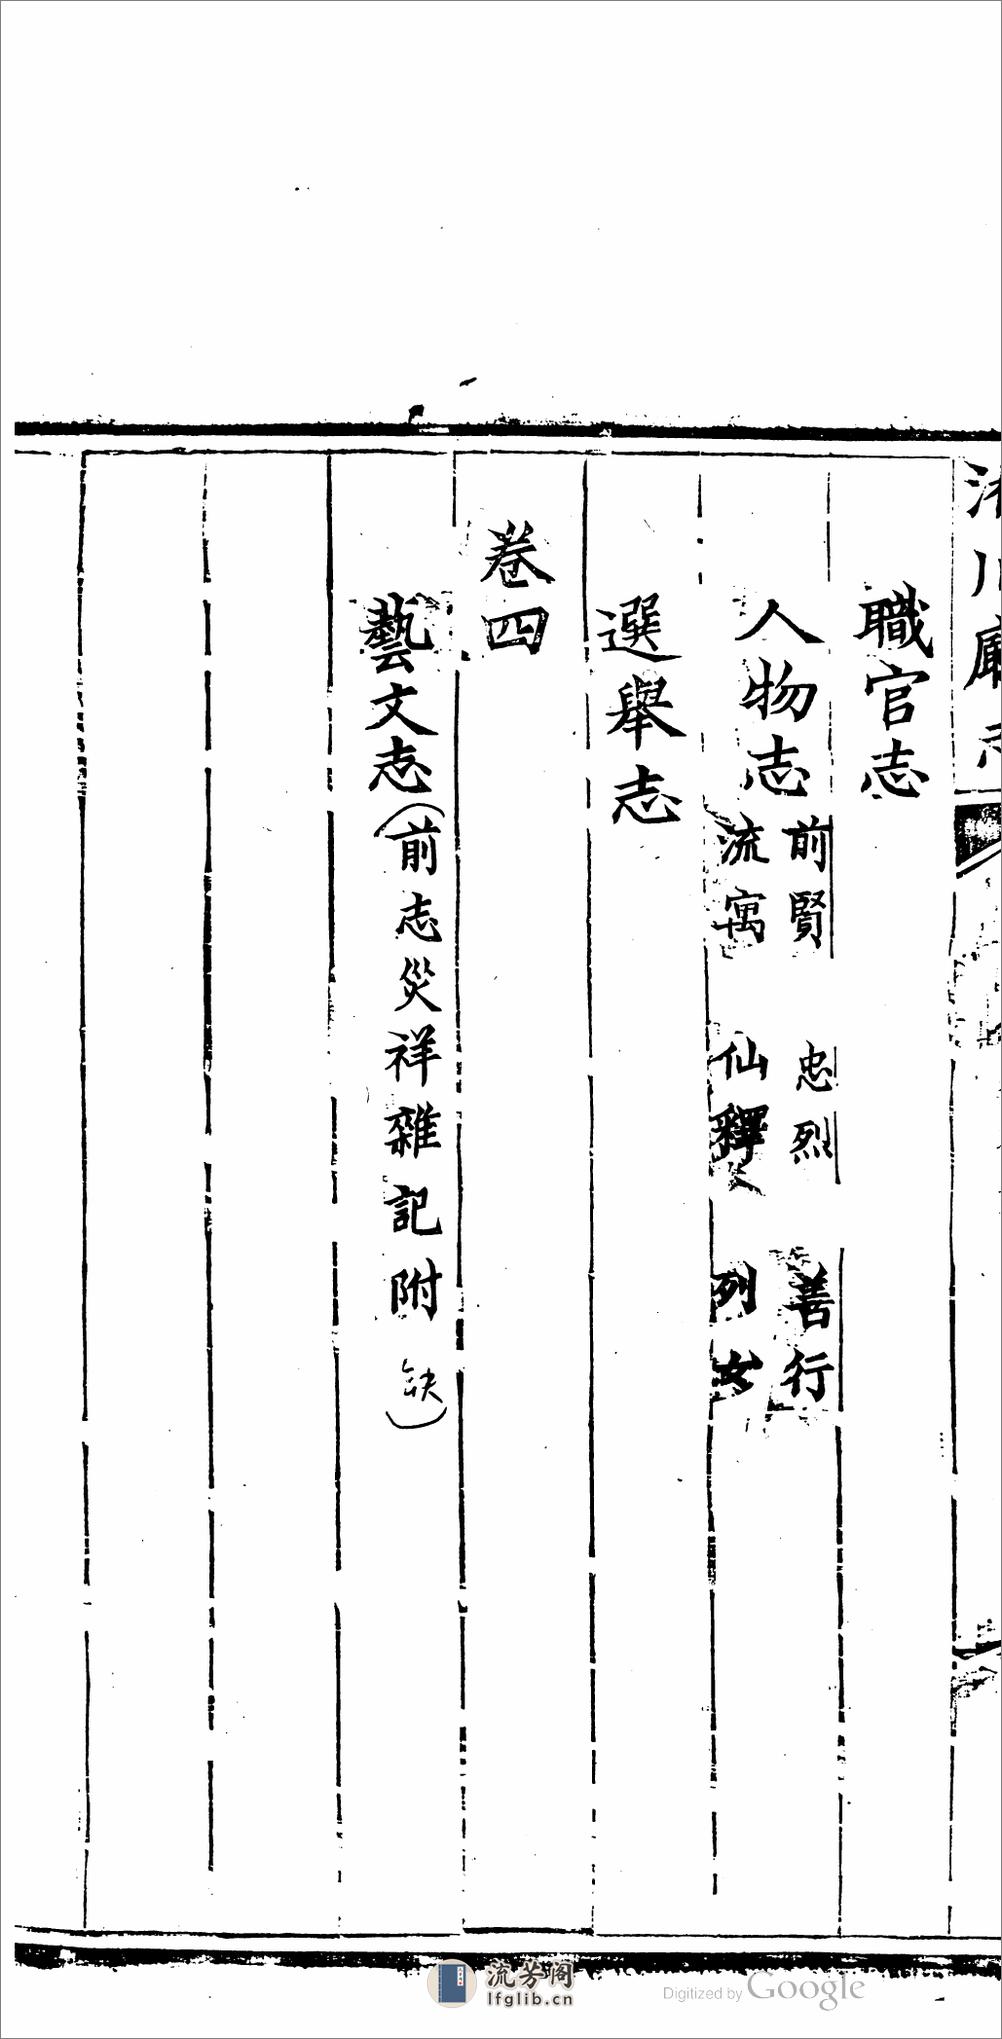 川廳志
職官志
人物志
前賢 忠烈 善行
流寓 仙釋 列女
選舉志
卷四
藝文志(前志災祥雜記附 缺)
流芳閣
lfglib.cn
Digitized by Google